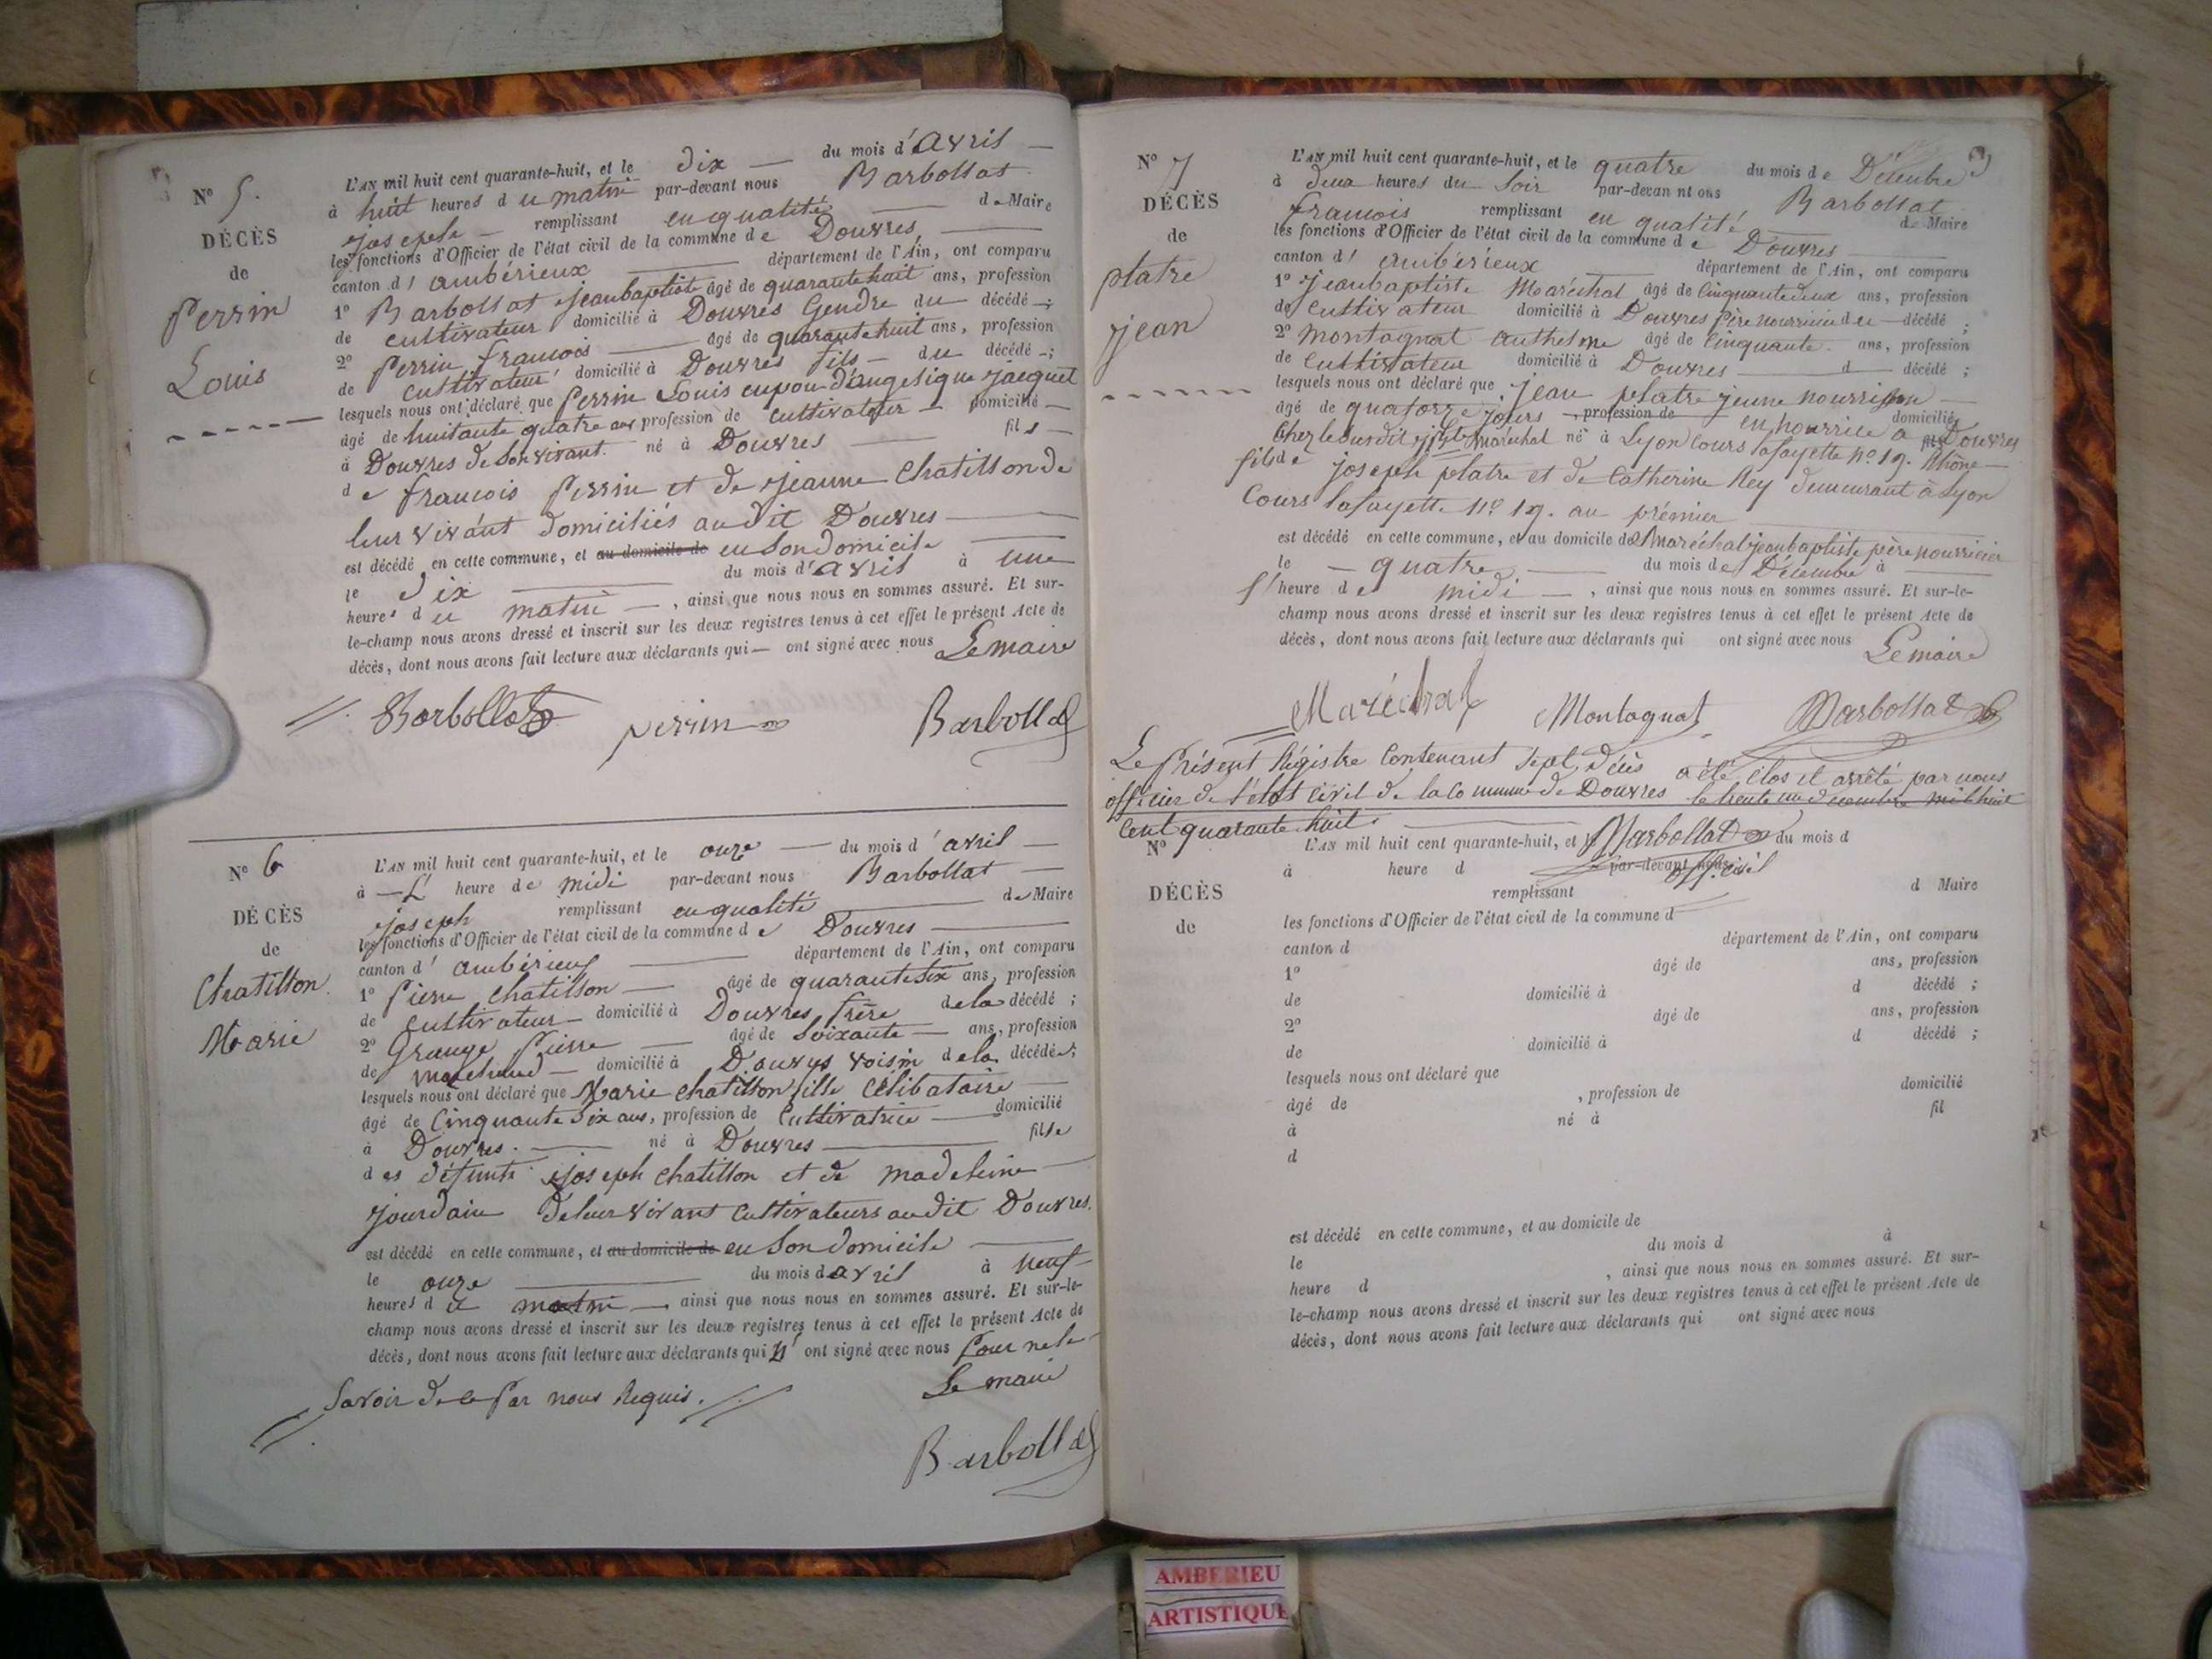 N° 5.
DÉCÈS
de
Perrin
Louis
L'AN mil huit cent quarante-huit, et le dix du mois d'avril
à huit heures du matin par-devant nous Barbollat
joseph remplissant en qualité de Maire
les fonctions d'Officier de l'état civil de la commune de Douvres
canton d'ambérieux département de l'Ain, ont comparu
1° Barbollat jeanbaptiste âgé de quarantehuit ans, profession
de cultivateur domicilié à Douvres Gendre du décédé ;
2° Perrin francois âgé de quarantehuit ans, profession
de cultivateur domicilié à Douvres fils du décédé ;
lesquels nous ont déclaré que Perrin Louis epou d'angelique jacquet
âgé de huitante quatre ans profession de cultivateur domicilié
à Douvres de Son vivant. né à Douvres fils
de francois Perrin et de jeanne Chatillon de
leur vivant domiciliés au dit Douvres
est décédé en cette commune, et au domicile de en Son domicile
le dix du mois d'avril à une
heures du matin, ainsi que nous nous en sommes assuré. Et sur-
le-champ nous avons dressé et inscrit sur les deux registres tenus à cet effet le présent Acte de
décès, dont nous avons fait lecture aux déclarants qui ont signé avec nous Le maire
Barbollat perrin Barbollat
N° 6
DÉCÈS
de
Chatillon
Marie
L'AN mil huit cent quarante-huit, et le onze du mois d'avril
à L' heure de midi par-devant nous Barbollat
joseph remplissant en qualité de Maire
les fonctions d'Officier de l'état civil de la commune de Douvres
canton d'ambérieux département de l'Ain, ont comparu
1° Pierre Chatillon âgé de quarantesix ans, profession
de cultivateur domicilié à Douvres frère de la décédé ;
2° Grange Pierre âgé de Soixante ans, profession
de marchand domicilié à Douvres voisin de la décédée ;
lesquels nous ont déclaré que Marie Chatillon fille Célibataire
âgé de Cinquante Six ans, profession de Cultivatrice domicilié
à Douvres. né à Douvres fille
des défunts joseph Chatillon et de madeleine
jourdain de leur vivant Cultivateurs au dit Douvres.
est décédé en cette commune, et au domicile de en Son domicile
le onze du mois d'avril à neuf
heures du matin, ainsi que nous nous en sommes assuré. Et sur-le-
champ nous avons dressé et inscrit sur les deux registres tenus à cet effet le présent Acte de
décès, dont nous avons fait lecture aux déclarants qui n'ont signé avec nous Pour ne le
Savoir de ce Par nous Requis. Le maire
Barbollat
N° 7
DÉCÈS
de
platre
jean
L'AN mil huit cent quarante-huit, et le quatre du mois de Décembre
à deux heures du Soir par-devan nt ous Barbollat
francois remplissant en qualité de Maire
les fonctions d'Officier de l'état civil de la commune de Douvres
canton d'ambérieux département de l'Ain, ont comparu
1° jeanbaptiste Maréchal âgé de Cinquantedeux ans, profession
de Cultivateur domicilié à Douvres Père nourricier du décédé ;
2° Montagnat Anthelme âgé de Cinquante ans, profession
de Cultivateur domicilié à Douvres d décédé ;
lesquels nous ont déclaré que jean platre jeune nourrisson
âgé de quatorze jours, profession de en nourrice a domicilié
Chez le susdit jbte Maréchal né à Lyon Cours lafayette n° 19. Rhône Douvres
fils de joseph platre et de Catherine Rey demeurant à Lyon
Cours lafayette n° 19. au prémier
est décédé en cette commune, et au domicile de Maréchal jeanbaptiste père nourricier
le quatre du mois de Décembre à
l'heure de midi, ainsi que nous nous en sommes assuré. Et sur-le-
champ nous avons dressé et inscrit sur les deux registres tenus à cet effet le présent Acte de
décès, dont nous avons fait lecture aux déclarants qui ont signé avec nous Le maire
Maréchal Montagnat Barbollat
Le Présent Régistre Contenant Sept décès a été Clos et arrêté par nous
officier de l'état civil de la Commune de Douvres le trente un décembre mil huit
Cent quarante huit.
N°
DÉCÈS
de
L'AN mil huit cent quarante-huit, et l Barbollat du mois d
à heure d par-devant nous off. civil
remplissant d Maire
les fonctions d'Officier de l'état civil de la commune d
canton d département de l'Ain, ont comparu
1° âgé de ans, profession
de domicilié à d décédé ;
2° âgé de ans, profession
de domicilié à d décédé ;
lesquels nous ont déclaré que
âgé de , profession de domicilié
à né à fil
d
est décédé en cette commune, et au domicile de
le du mois d à
heure d , ainsi que nous nous en sommes assuré. Et sur-
le-champ nous avons dressé et inscrit sur les deux registres tenus à cet effet le présent Acte de
décès, dont nous avons fait lecture aux déclarants qui ont signé avec nous
AMBERIEU
ARTISTIQUE